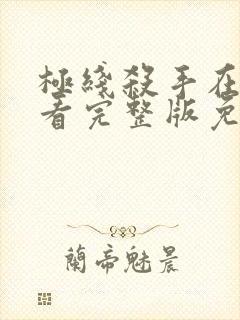 极綫殺手在
看完整版免
蘭帝魅晨